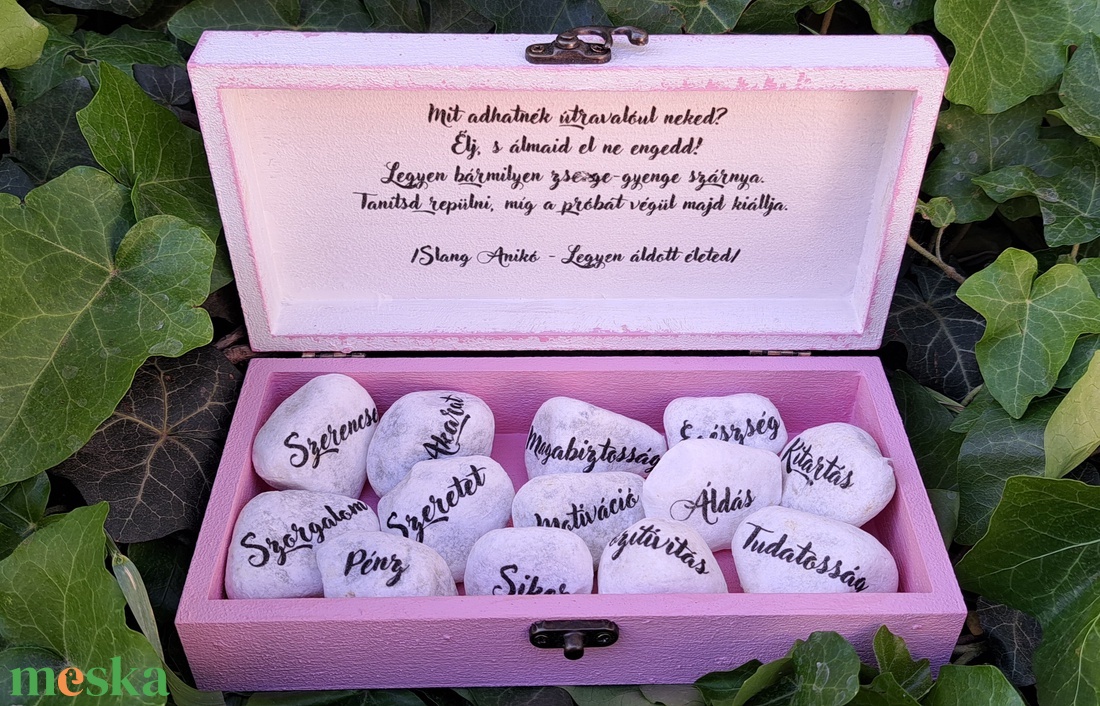 Mit adhatnék útravalóul neked?
Élj, s álmaid el ne engedd!
Legyen bármilyen zsenge-gyenge szárnya.
Tanítsd repülni, míg a próbát végül majd kiállja.
/Slang Anikó - Legyen áldott életed/
Szerencse
Akarat
Magabiztosság
Egészség
Kitartás
Szeretet
Motiváció
Áldás
Szorgalom
Pénz
Siker
ozitivitás
Tudatosság
meska